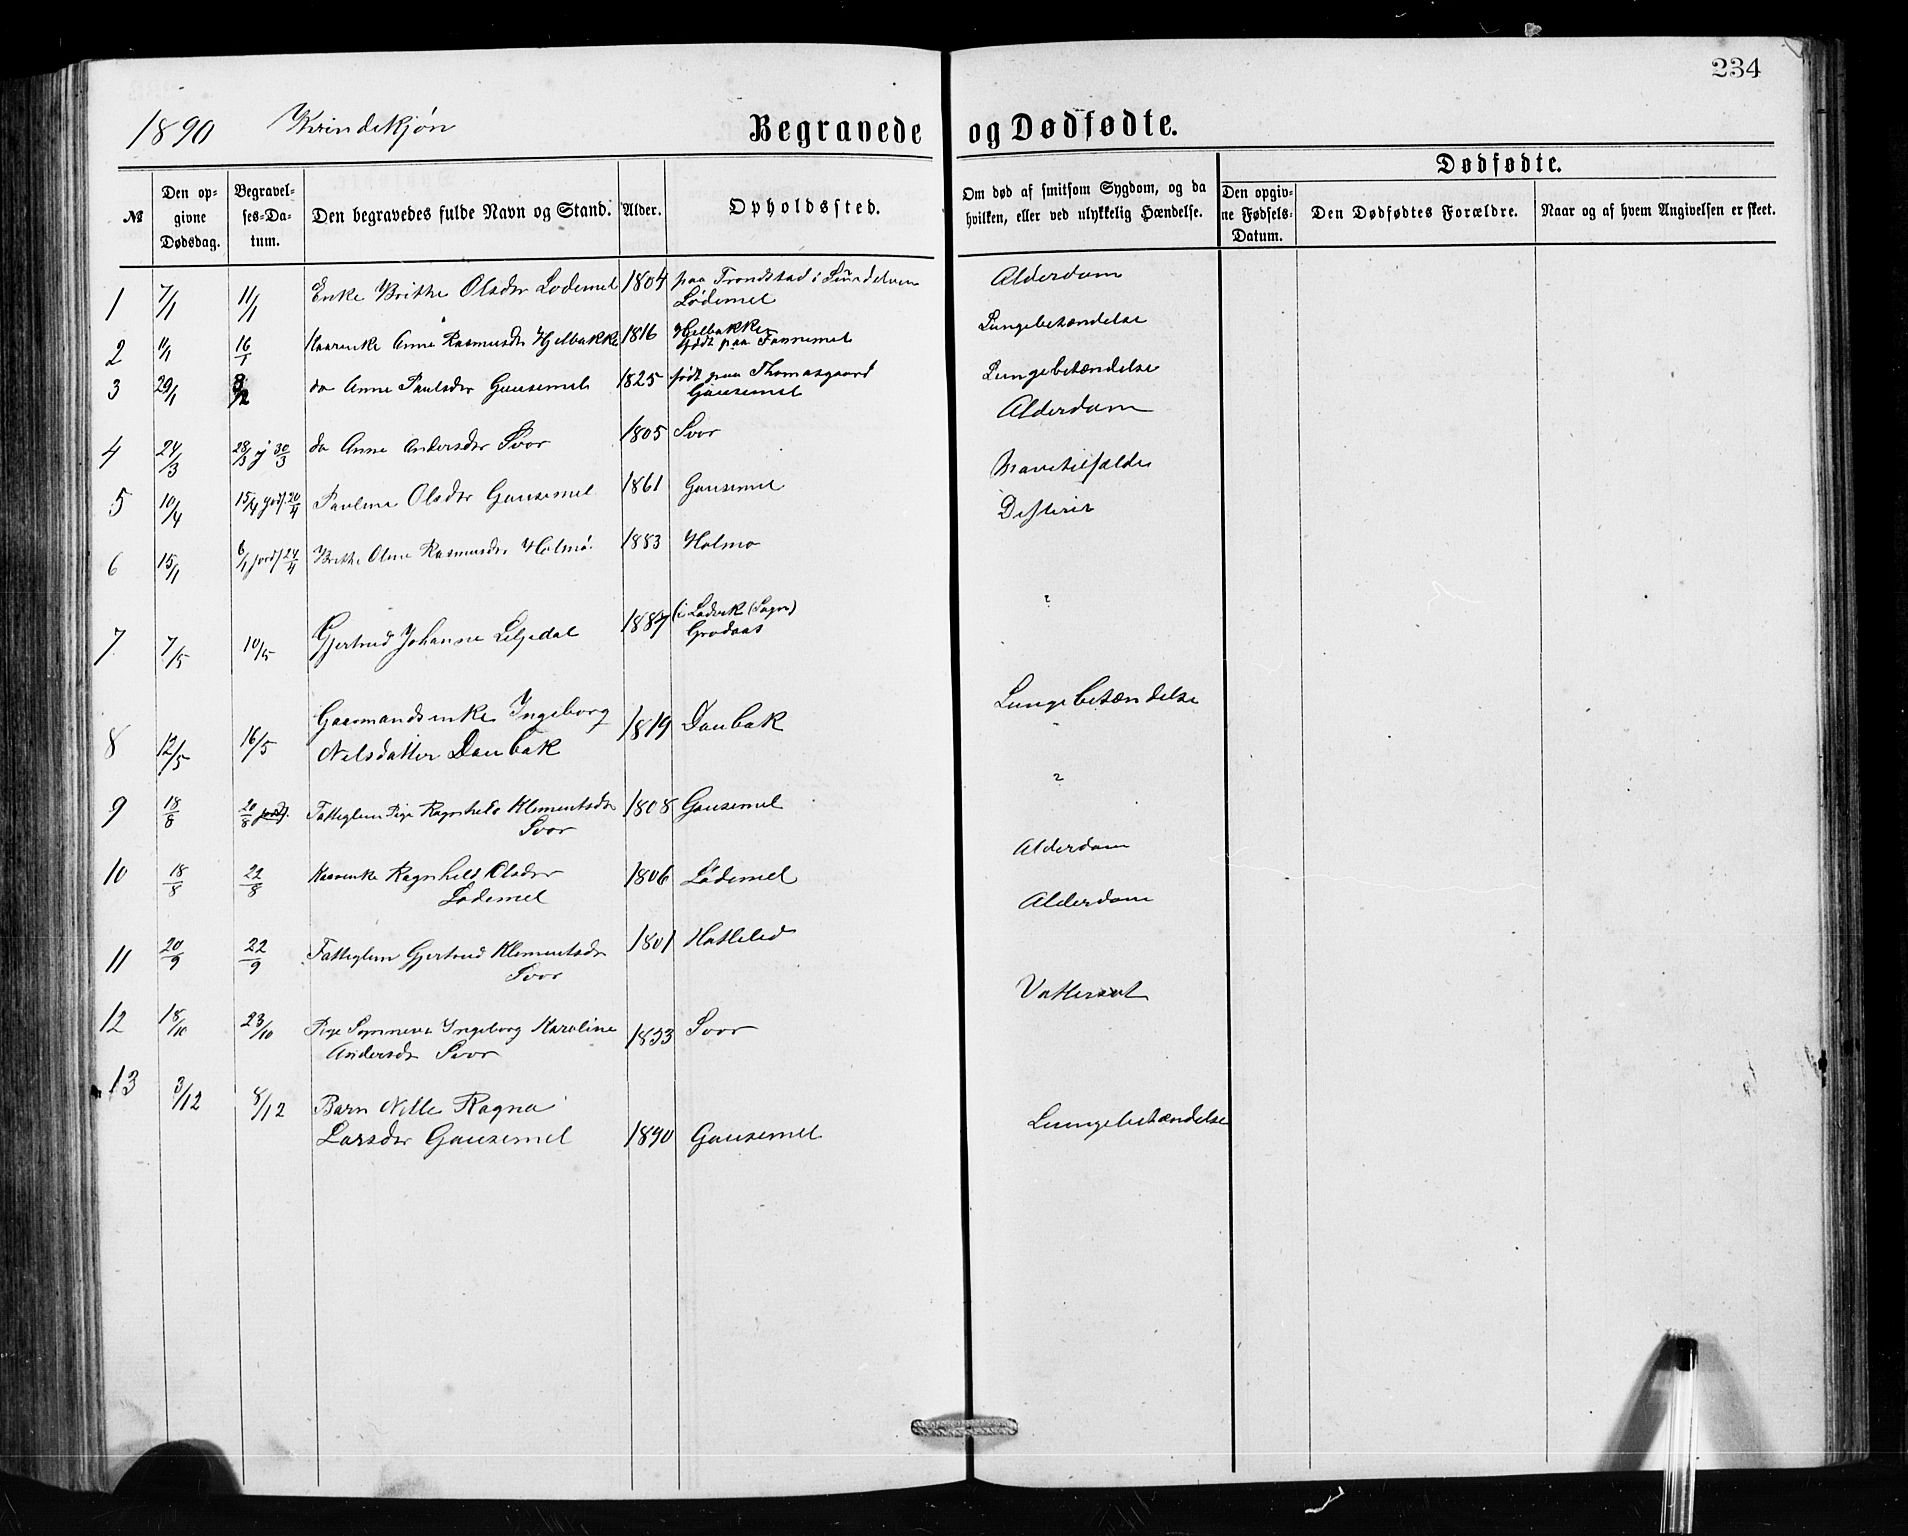 234
1890 Kvindekjøn Begravede og Dødfødte.
Dødfødte.
№ Den op- givne Dødsdag. Begravel- ses-Da- tum. Den begravedes fulde Navn og Stand. Alder. Opholdssted. Om død af smitsom Sygdom, og da hvilken, eller ved ulykkelig Hændelse. Den opgiv- ne Fødsels- Datum. Den Dødfødtes Forældre. Naar og af hvem Angivelsen er skeet.
1 7/1 11/1 Enke Brithe Olsdtr Lødemel 1804 paa Trondstad i
Lødemel Alderdom
2 11/1 16/1 Kaarenke Anne Rasmusdtr Hjelbakke 1816 Hjelbakke
født paa Lungebetændelse
3 29/1 3/2 do Anne Paulsdtr Gausemel 1825 født paa Thomasgaard
Gausemel Lungebetændelse
4 24/3 28/3 j 30/3 do Anne Andersdtr Svor 1805 Svor Alderdom
5 10/4 15/4 jordf. 20/4 Pauline Olsdtr Gausemel 1861 Gausemel Mavetilfælde
6 15/1 6/1 jordf 24/4 Brithe Oline Rasmusdtr Holmø. 1883 Holmø Difterit
7 7/5 10/5 Gjertrud Johanne Liljedal 1887 (i Ladvik (Sogn)
Grodaas ?
8 12/5 16/5 Gaarmandsenke Ingeborg
Nilsdatter Daubak 1819 Daubak Lungebetændelse
9 18/8 20/8 jordf. Fattiglem Pige Ragnhild Klementsdtr
Svor 1808 Gausemel ?
10 18/8 22/8 Kaarenke Ragnhild Olsdtr
Lødemel 1806 Lødemel Alderdom
11 20/9 22/9 Fattiglem Gjertrud Klementsdtr
Svor 1801 Hatleled Alderdom
12 18/10 23/10 Pige Synneva Ingeborg Karoline
Andersdtr Svor 1833 Svor Vattersot
13 3/12 8/12 Barn Nille Ragna
Larsdtr Gausemel 1890 Gausemel Lungebetændelse